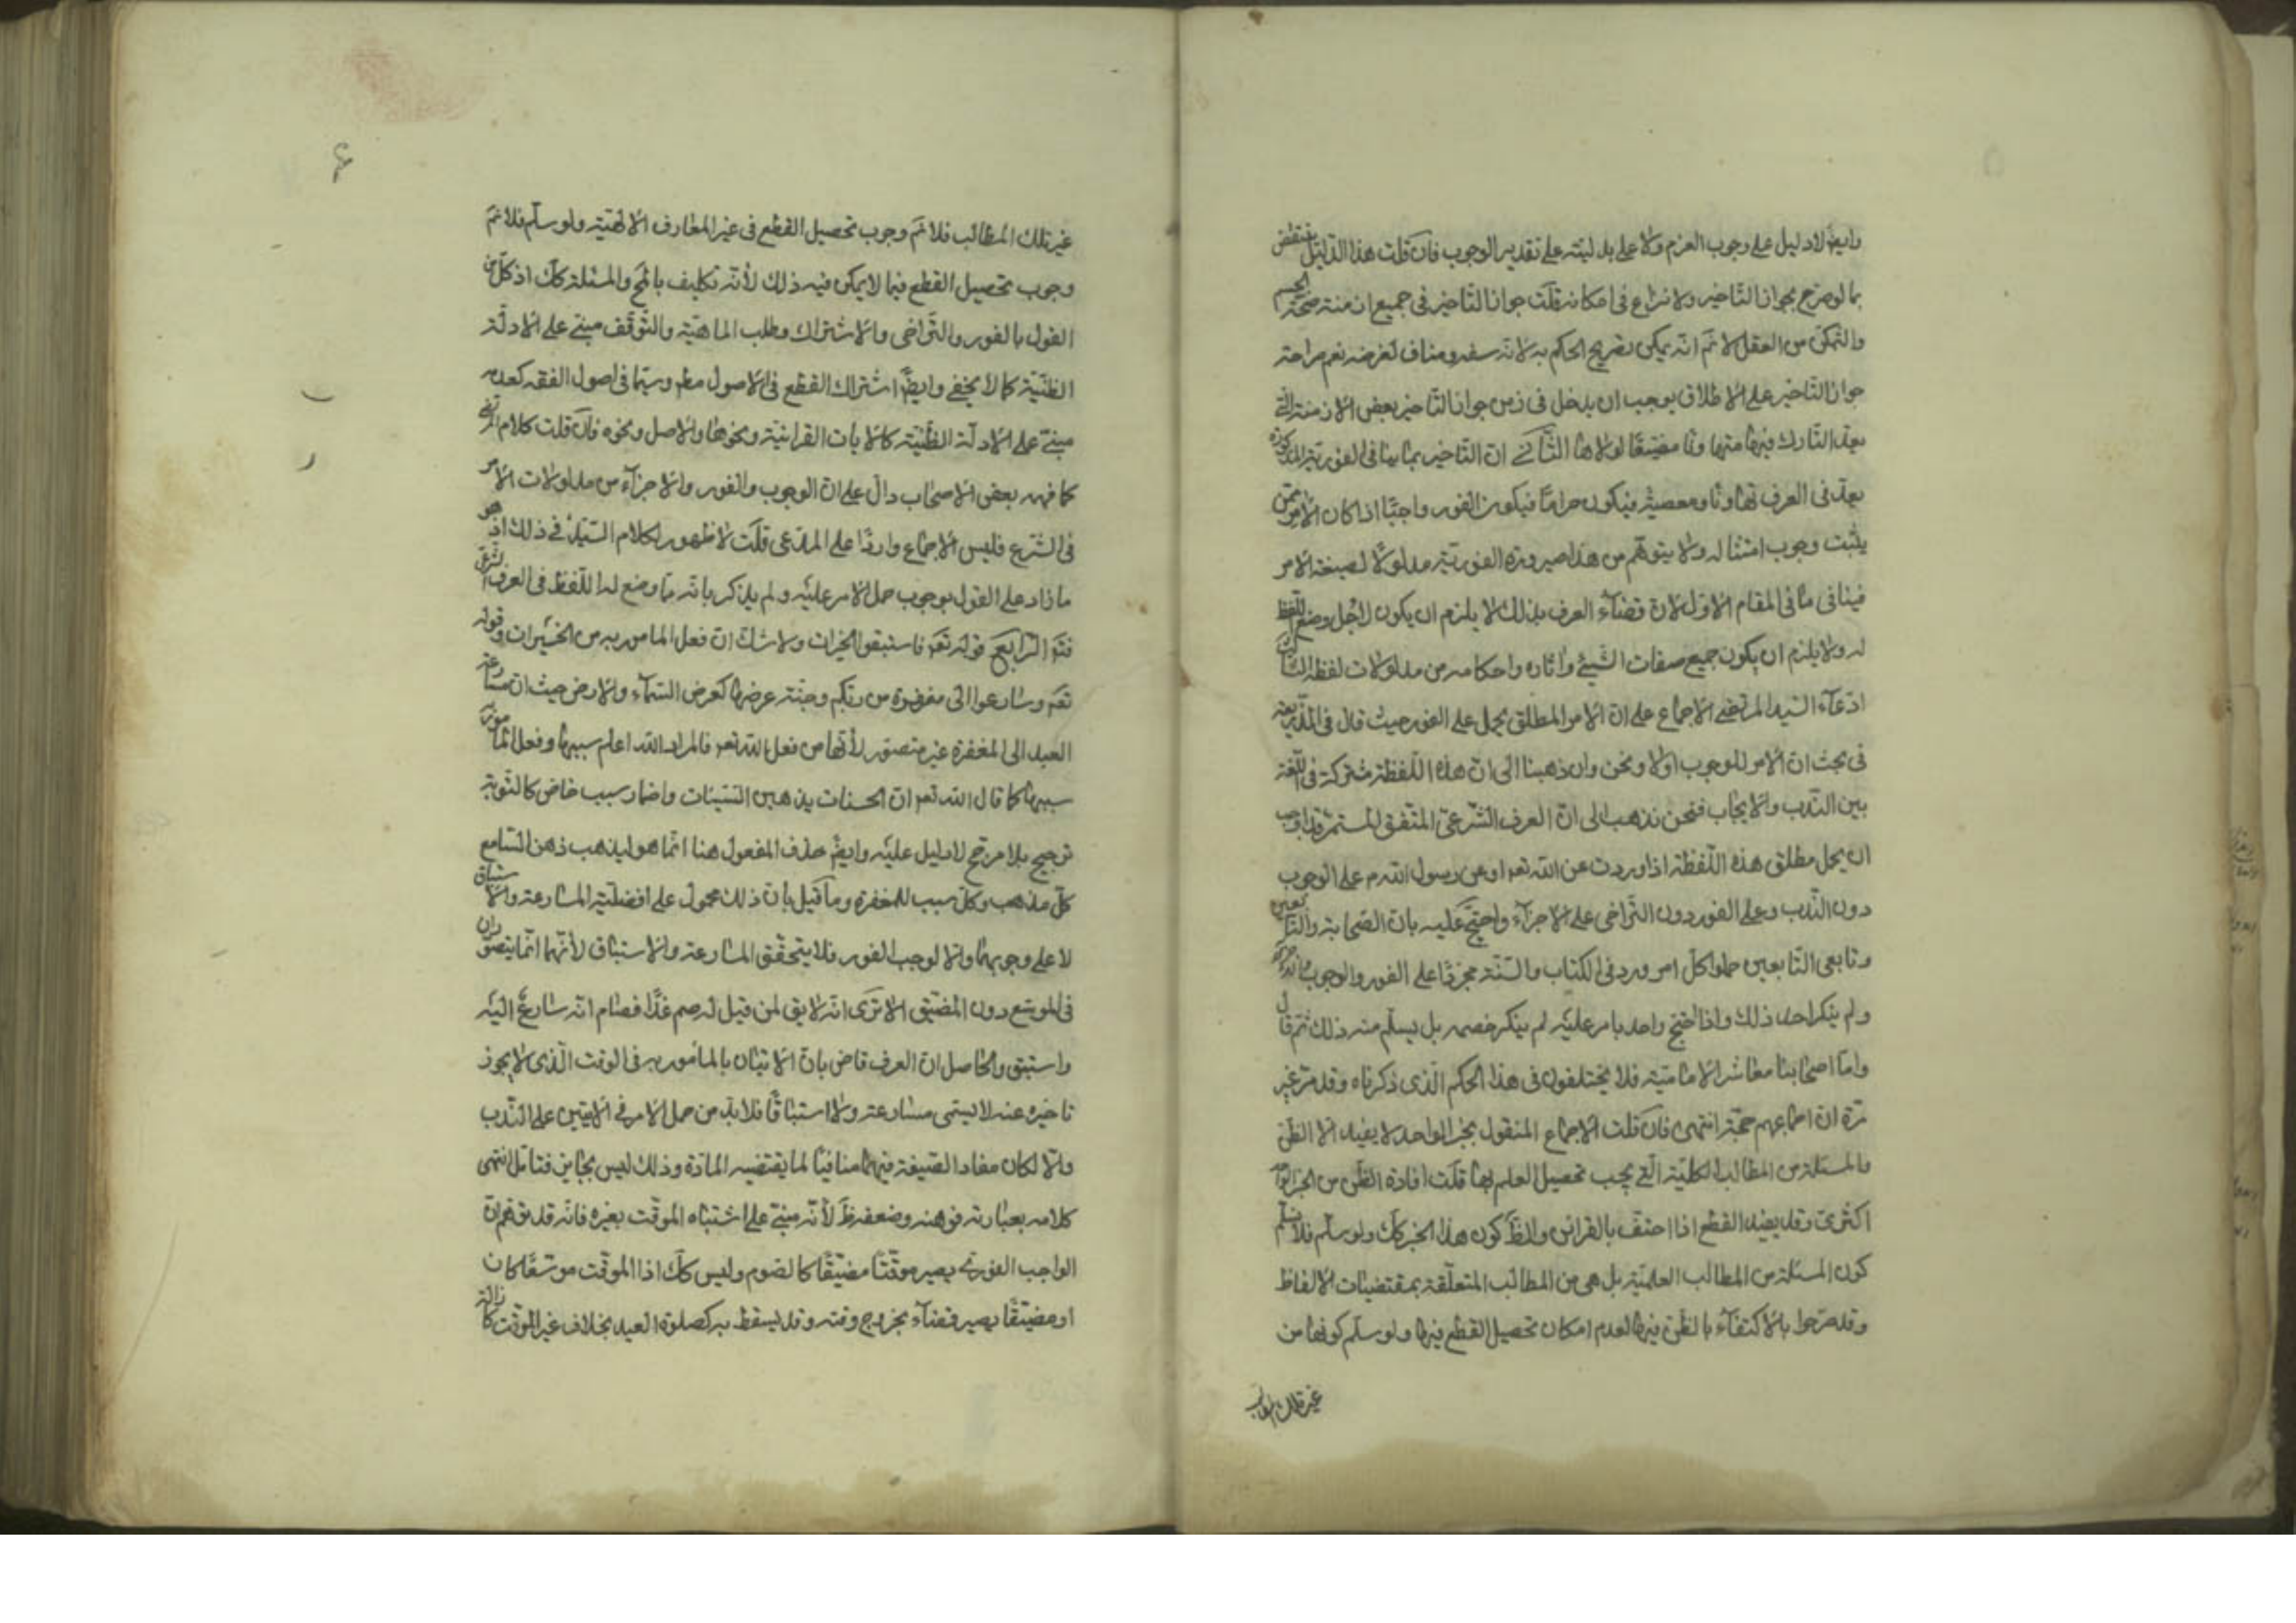 وايضا لادليل على وجوب العزم ولا على بدليته على تقدير الوجوب فان قلت هذا الدليل ينتقض
بما لو صرح بجواز التاخير ولا نزاع في امكانه قلت جواز التاخير في جميع ازمنة صحة الجسم
والتمكن من العقل لا نم انه يمكن تصريح الحكم به لانه سفه ومناف لغرضه نعم صراحة
جواز التاخير على الاطلاق يوجب ان يدخل في زمن جواز التاخير بعض الازمنة التي
يعد التارك فيها متهاونا مضيقا لولاها الثاني ان التاخير بما ينافي الفورية المذكورة
يعد في العرف تهاونا ومعصية فيكون حراما فيكون الفور واجبا اذا كان الامر ممن
يثبت وجوب امتثاله ولا يتوهم من هذا صيرورة الفورية مدلولا لصيغة الامر
فينافي ما في المقام الاول لان قضاء العرف بذلك لا يلزم ان يكون لاجل وضع اللفظ
له ولا يلزم ان يكون جميع صفات الشيء واثاره واحكامه من مدلولات لفظه الثالث
ادعاء السيد المرتضى الاجماع على ان الامر المطلق يحمل على الفور حيث قال في الذريعة
في بحث ان الامر للوجوب اولا ونحن وان ذهبنا الى ان هذه اللفظة مشتركة في اللغة
بين الندب والايجاب فنحن نذهب الى ان العرف الشرعي المتفق المستمر قد اوجب
ان يحمل مطلق هذه اللفظة اذا وردت عن الله تعه او عن رسول الله م على الوجوب
دون الندب وعلى الفور دون التراخي على الاجزاء واحتج عليه بان الصحابة والتابعين
وتابعي التابعين حملوا كل امر ورد في الكتاب والسنة مجردا على الفور والوجوب
ولم ينكر احد ذلك واذا احتج واحد بامر عليه لم ينكر خصمه بل يسلم منه ذلك ثم قال
واما اصحابنا معاشر الامامية فلا يختلفون في هذا الحكم الذي ذكرناه وقد مر غير
مرة ان اجماعهم حجة انتهى فان قلت الاجماع المنقول بخبر الواحد لا يفيد الا الظن
والمسئلة من المطالب الكلية التي يجب تحصيل العلم بها قلت افادة الظن من الخبر الواحد
اكثري وقد يفيد القطع اذا احتف بالقرائن والظ كون هذا الخبر كك ولو سلم فلا نسلم
كون المسئلة من المطالب العلمية بل هي من المطالب المتعلقة بمقتضيات الالفاظ
وقد صرحوا بالاكتفاء بالظن فيها لعدم امكان تحصيل القطع فيها ولو سلم كونها من
غير تلك المطالب
۶
غير تلك المطالب فلا نم وجوب تحصيل القطع في غير المعارف الالهية ولو سلم فلا نم
وجوب تحصيل القطع فيما لا يمكن فيه ذلك لانه تكليف بالمح والمسئلة كك اذ كل من
القول بالفور والتراخي والاشتراك وطلب الماهية والتوقف مبني على الادلة
الظنية كما لا يخفى وايضا اشتراك القطع في الاصول مطه وسيما في اصول الفقه كعدمه
مبني على الادلة الظنية كالايات القرانية ونحوها والاصل ونحوه فان قلت كلام المرتضى
كما فهمه بعض الاصحاب دال على ان الوجوب والفور والاجزاء من مدلولات الامر
في الشرع فليس الاجماع واردا على المدعى قلت لا ظهور لكلام السيد في ذلك اذ هو
ما زاد على القول بوجوب حمل الامر عليه ولم يذكر بانه مما وضع له اللفظ في العرف الشرعي
فتم الرابع قوله تعه فاستبقوا الخيرات ولا شك ان فعل المامور به من الخيرات وقوله
تعه وسارعوا الى مغفرة من ربكم وجنة عرضها كعرض السماء والارض حيث ان مسارعة
العبد الى المغفرة غير متصور لانها من فعل الله تعه فالمراد الله اعلم سببها وفعل المامور به
سببها كما قال الله تعه ان الحسنات يذهبن السيئات واضمار سبب خاص كالتوبة
ترجيح بلا مرجح لا دليل عليه وايضا حذف المفعول هنا انما هو ليذهب ذهن السامع
كل مذهب وكل سبب للمغفرة وما قيل بان ذلك محمول على افضلية المسارعة والاستباق
لا على وجوبهما والا لوجب الفور فلا يتحقق المسارعة والاستباق لانهما انما يتصوران
في الموسع دون المضيق الا ترى انه لا يق لمن قيل له صم غدا فصام انه سارع اليه
واستبق والحاصل ان العرف قاض بان الاتيان بالمامور به في الوقت الذي لا يجوز
تاخيره عنه لا يسمى مسارعة ولا استباقا فلابد من حمل الامر في الايتين على الندب
والا لكان مفاد الصيغة فيهما منافيا لما يقتضيه المادة وذلك ليس بجايز فتامل انتهى
كلامه بعبارته فوهنه وضعفه ظ لانه مبني على اشتباه الموقت بغيره فانه قد توهم ان
الواجب الفوري يصير موقتا مضيقا كالصوم وليس كك اذ الموقت موسعا كان
او مضيقا يصير قضاء بخروج وقته وقد يسقط به كصلوة العيد بخلاف غير الموقت كازالة